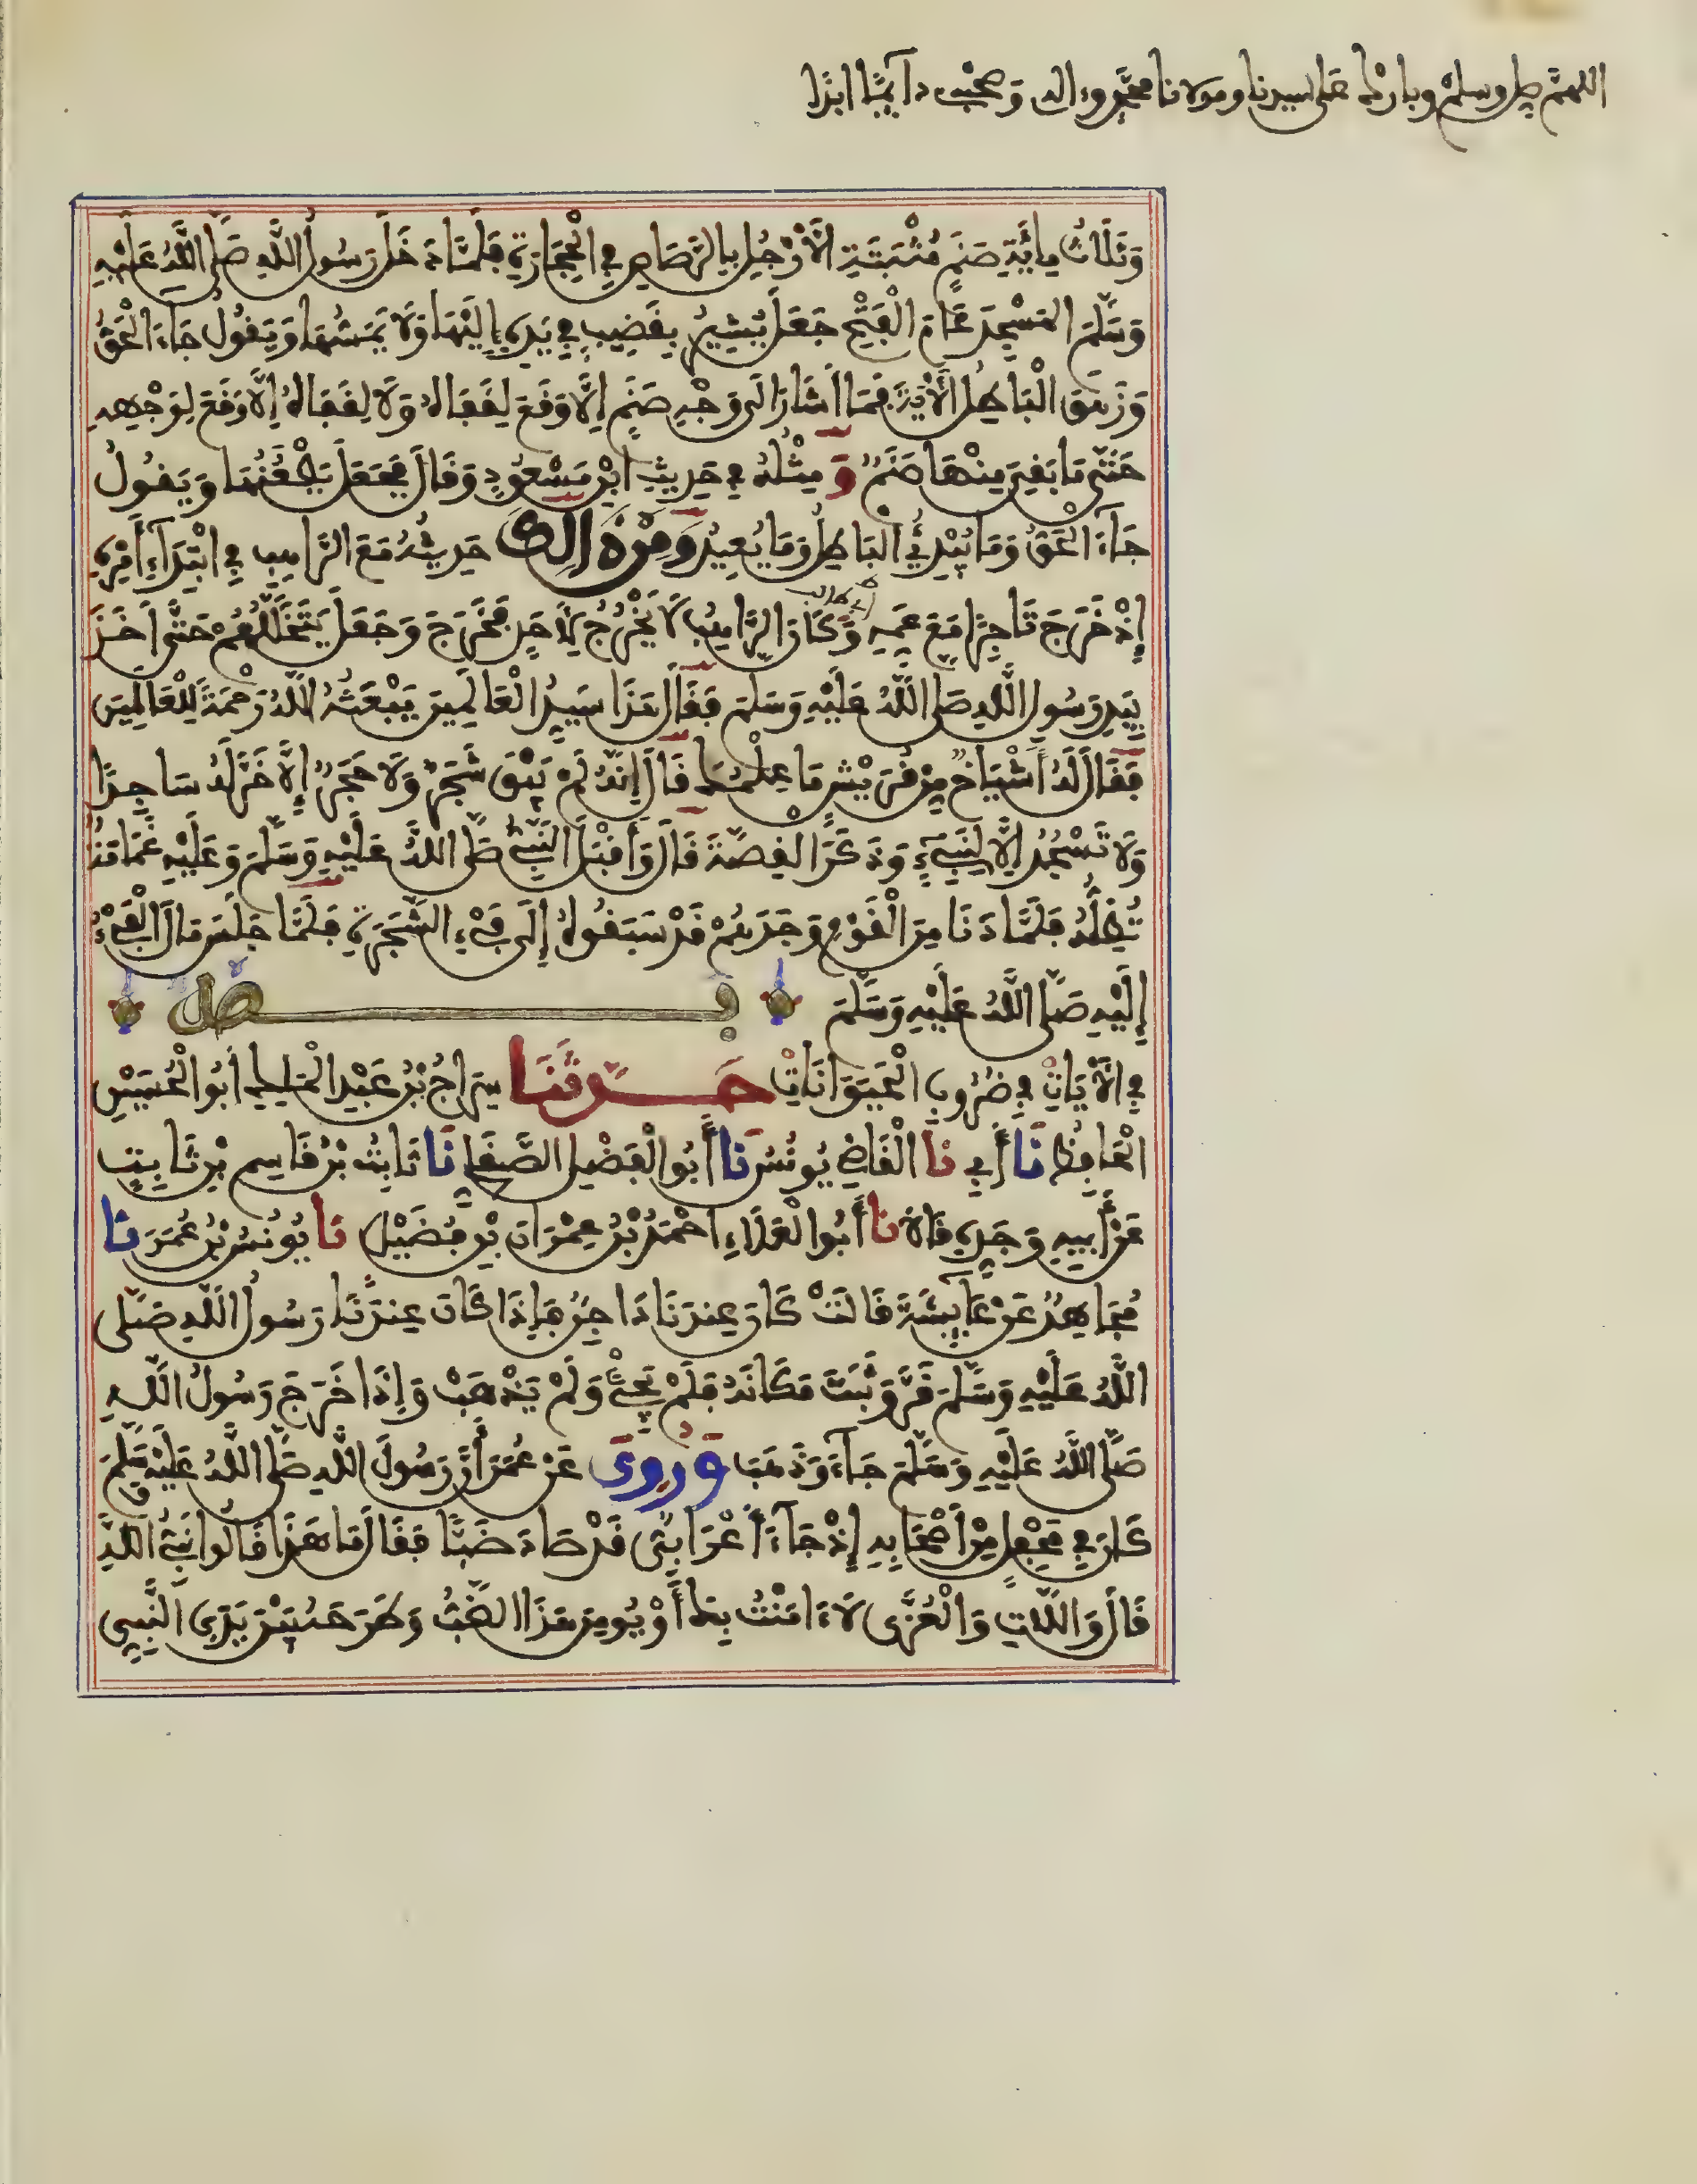 اللهم صل وسلم وبارك على سيدنا ومولانا محمد وءاله وصحبه دآئما ابدا
وَثَلَاثُ مِائَةِ صَنَمٍ مُثْبَتَةِ الْأَرْجُلِ بِالرَّصَاصِ فِي الْحِجَارَةِ فَلَمَّا دَخَلَ رَسُولُ اللَّهِ صَلَّى اللَّهُ عَلَيْهِ
وَسَلَّمَ الْمَسْجِدَ عَامَ الْفَتْحِ جَعَلَ يُشِيرُ بِقَضِيبٍ فِي يَدِهِ إِلَيْهَا وَلَا يَمَسُّهَا وَيَقُولُ جَاءَ الْحَقُّ
وَزَهَقَ الْبَاطِلُ الْأَيَةَ فَمَا أَشَارَ إِلَى وَجْهِ صَنَمٍ إِلَّا وَقَعَ لِقَفَاهُ وَلَا لِقَفَاهُ إِلَّا وَقَعَ لِوَجْهِهِ
حَتَّى مَا بَقِيَ مِنْهَا صَنَمٌ وَمِثْلُهُ فِي حَدِيثِ ابْنِ مَسْعُودٍ وَقَالَ فَجَعَلَ يَطْعُنُهَا وَيَقُولُ
جَآءَ الْحَقُّ وَمَا يُبْدِئُ الْبَاطِلُ وَمَا يُعِيدُ وَمِنْ ذَالِكَ حَدِيثُهُ مَعَ الرَّاهِبِ فِي ابْتِدَآءِ أَمْرِهِ
إِذْ خَرَجَ تَاجِرًا مَعَ عَمِّهِ وَكَانَ الرَّاهِبُ لَا يَخْرُجُ لِأَحَدٍ فَخَرَجَ وَجَعَلَ يَتَخَلَّلُهُمْ حَتَّى أَخَذَ
أبي طالب
بِيَدِ رَسُولِ اللَّهِ صَلَّى اللَّهُ عَلَيْهِ وَسَلَّمَ فَقَالَ هَذَا سَيِّدُ الْعَالَمِينَ يَبْعَثُهُ اللَّهُ رَحْمَةً لِلْعَالَمِينَ
فَقَالَ لَهُ أَشْيَاخٌ مِنْ قُرَيْشٍ مَا عِلْمُكَ قَالَ إِنَّهُ لَمْ يَبْقَ شَجَرٌ وَلَا حَجَرٌ إِلَّا خَرَّ لَهُ سَاجِدًا
وَلَا تَسْجُدُ إِلَّا لِنَبِيٍّ وَذَكَرَ الْقِصَّةَ قَالَ وَأَقْبَلَ النَّبِيُّ صَلَّى اللَّهُ عَلَيْهِ وَسَلَّمَ وَعَلَيْهِ غَمَامَةٌ
تُظِلُّهُ فَلَمَّا دَنَا مِنَ الْقَوْمِ وَجَدَهُمْ قَدْ سَبَقُوهُ إِلَى فَيْءِ الشَّجَرَةِ فَلَمَّا جَلَسَ مَالَ الْفَيْءُ
إِلَيْهِ صَلَّى اللَّهُ عَلَيْهِ وَسَلَّمَ فصل
فِي الْأَيَاتِ فِي ضُرُوبِ الْحَيَوَانَاتِ حَدَّثَنَا سِرَاجُ بْنُ عَبْدِ الْمَلِكِ أَبُو الْحُسَيْنِ
الْحَافِظُ نَا أَبِي نَا الْقَاضِي يُونُسُ نَا أَبُو الْفَضْلِ الصَّقَلِيُّ نَا ثَابِتُ بْنُ قَاسِمِ بْنِ ثَابِتٍ
عَنْ أَبِيهِ وَجَدِّهِ قَالَا نَا أَبُو الْعَلَاءِ أَحْمَدُ بْنُ عِمْرَانَ بْنِ فُضَيْلٍ نَا يُونُسُ بْنُ عُمَرَ نَا
مُجَاهِدٌ عَنْ عَآئِشَةَ قَالَتْ كَانَ عِنْدَنَا دَاجِنٌ فَإِذَا كَانَ عِنْدَنَا رَسُولُ اللَّهِ صَلَّى
اللَّهُ عَلَيْهِ وَسَلَّمَ قَرَّ وَثَبَتَ مَكَانَهُ فَلَمْ يَجِئْ وَلَمْ يَذْهَبْ وَإِذَا خَرَجَ رَسُولُ اللَّهِ
صَلَّى اللَّهُ عَلَيْهِ وَسَلَّمَ جَآءَ وَذَهَبَ وَرُوِيَ عَنْ عُمَرَ أَنَّ رَسُولَ اللَّهِ صَلَّى اللَّهُ عَلَيْهِ وَسَلَّمَ
كَانَ فِي مَحْفِلٍ مِنْ أَصْحَابِهِ إِذْ جَآءَ أَعْرَابِيٌّ قَدْ صَادَ ضَبًّا فَقَالَ مَا هَذَا قَالُوا نَبِيُّ اللَّهِ
قَالَ وَاللَّاتِ وَالْعُزَّى لَا ءَامَنْتُ بِكَ أَوْ يُومِنَ هَذَا الضَّبُّ وَطَرَحَهُ بَيْنَ يَدَيِ النَّبِيِّ